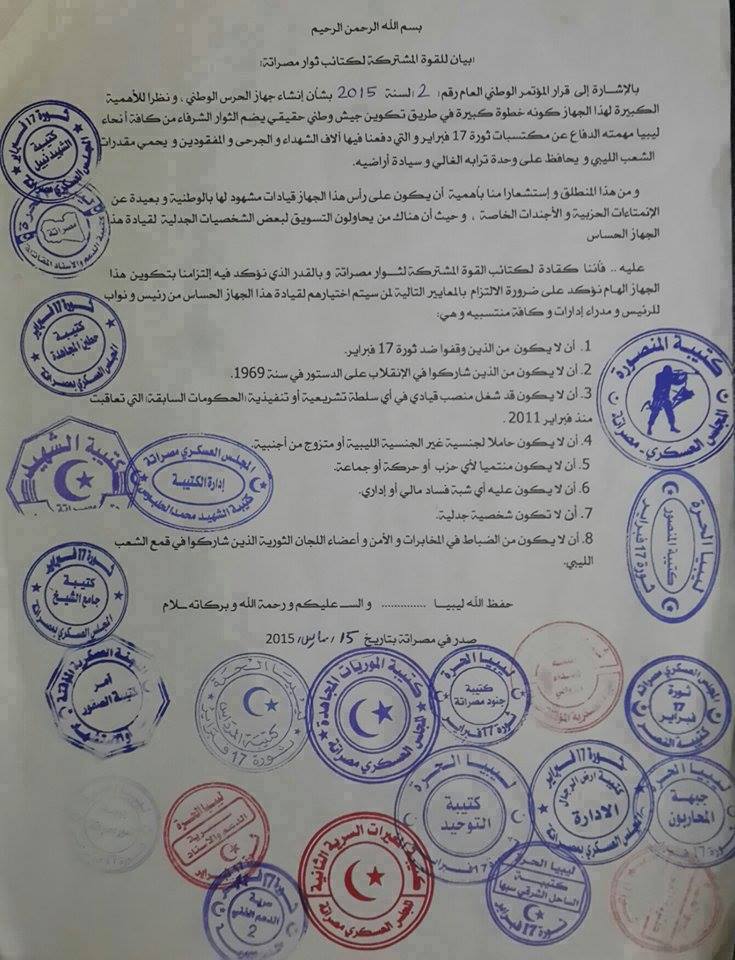 بسم الله الرحمن الرحيم
(بيان للقوة المشتركة لكتائب ثوار مصراتة)
بالإشارة إلى قرار المؤتمر الوطني العام رقم: 2 لسنة 2015 بشأن إنشاء جهاز الحرس الوطني , و نظرا للأهمية
الكبيرة لهذا الجهاز كونه خطوة كبيرة في طريق تكوين جيش وطني حقيقي يضم الثوار الشرفاء من كافة أنحاء
ليبيا مهمته الدفاع عن مكتسبات ثورة 17 فبراير و التي دفعنا فيها ألاف الشهداء و الجرحى و المفقودين و يحمي مقدرات
الشعب الليبي و يحافظ على وحدة ترابه الغالي و سيادة أراضيه.
و من هذا المنطلق و إستشعارا منا بأهمية أن يكون على رأس هذا الجهاز قيادات مشهود لها بالوطنية و بعيدة عن
الإنتماءات الحزبية و الأجندات الخاصة , و حيث أن هناك من يحاولون التسويق لبعض الشخصيات الجدلية لقيادة هذا
الجهاز الحساس
عليه .. فأننا كقادة لكتائب القوة المشتركة لثوار مصراتة و بالقدر الذي نؤكد فيه إلتزامنا بتكوين هذا
الجهاز الهام نؤكد على ضرورة الالتزام بالمعايير التالية لمن سيتم اختيارهم لقيادة هذا الجهاز الحساس من رئيس و نواب
للرئيس و مدراء إدارات و كافة منتسبيه و هي:
1. أن لا يكون من الذين وقفوا ضد ثورة 17 فبراير.
2. أن لا يكون من الذين شاركوا في الإنقلاب على الدستور في سنة 1969.
3. أن لا يكون قد شغل منصب قيادي في أي سلطة تشريعية أو تنفيذية (الحكومات السابقة) التي تعاقبت
منذ فبراير 2011 .
4. أن لا يكون حاملا لجنسية غير الجنسية الليبية أو متزوج من أجنبية.
5. أن لا يكون منتميا لأي حزب أو حركة أو جماعة.
6. أن لا يكون عليه أي شبة فساد مالي أو إداري.
7. أن لا تكون شخصية جدلية.
8. أن لا يكون من الضباط في المخابرات و الأمن و أعضاء اللجان الثورية الذين شاركوا في قمع الشعب
الليبي.
حفظ الله ليبيا .............. و السـ عليكم و رحمة الله و بركاته ـلام
صدر في مصراتة بتاريخ 15 / مارس / 2015
ثورة 17 فبراير
كتيبة
الشهيد نبيل
المجلس العسكري مصراتة
مصراتة
ثورة 17 فبراير
كتيبة
حطين المجاهدة
المجلس العسكري بمصراتة
كتيبة المنصورة
المجلس العسكري - مصراتة
كتيبة الشهيد
مصراتة
المجلس العسكري مصراتة
إدارة الكتيبة
ليبيا الحرة
كتيبة
المنصور
ثورة 17 فبراير
ثورة 17 فبراير
كتيبة
جامع الشيخ
المجلس العسكري بمصراتة
آمر
كتيبة الصقور
ليبيا الحرة
ثورة 17 فبراير
كتيبة الموريات المجاهدة
المجلس العسكري مصراتة
ليبيا الحرة
كتيبة
جنود مصراتة
ثورة 17 فبراير
المجلس العسكري مصراتة
ثورة
17
فبراير
كتيبة النصر
ليبيا الحرة
سرية
الدعم والاسناد
17 فبراير
ليبيا الحرة
كتيبة
التوحيد
ثورة 17 فبراير
ثورة 17 فبراير
كتيبة ارض الرجال
الادارة
المجلس العسكري بمصراتة
ليبيا الحرة
جبهة
المحاربون
17 فبراير
المجلس العسكري مصراتة
سرية
الدعم الفني
2
ليبيا الحرة
كتيبة
الساحل الشرقي سبها
ثورة 17 فبراير